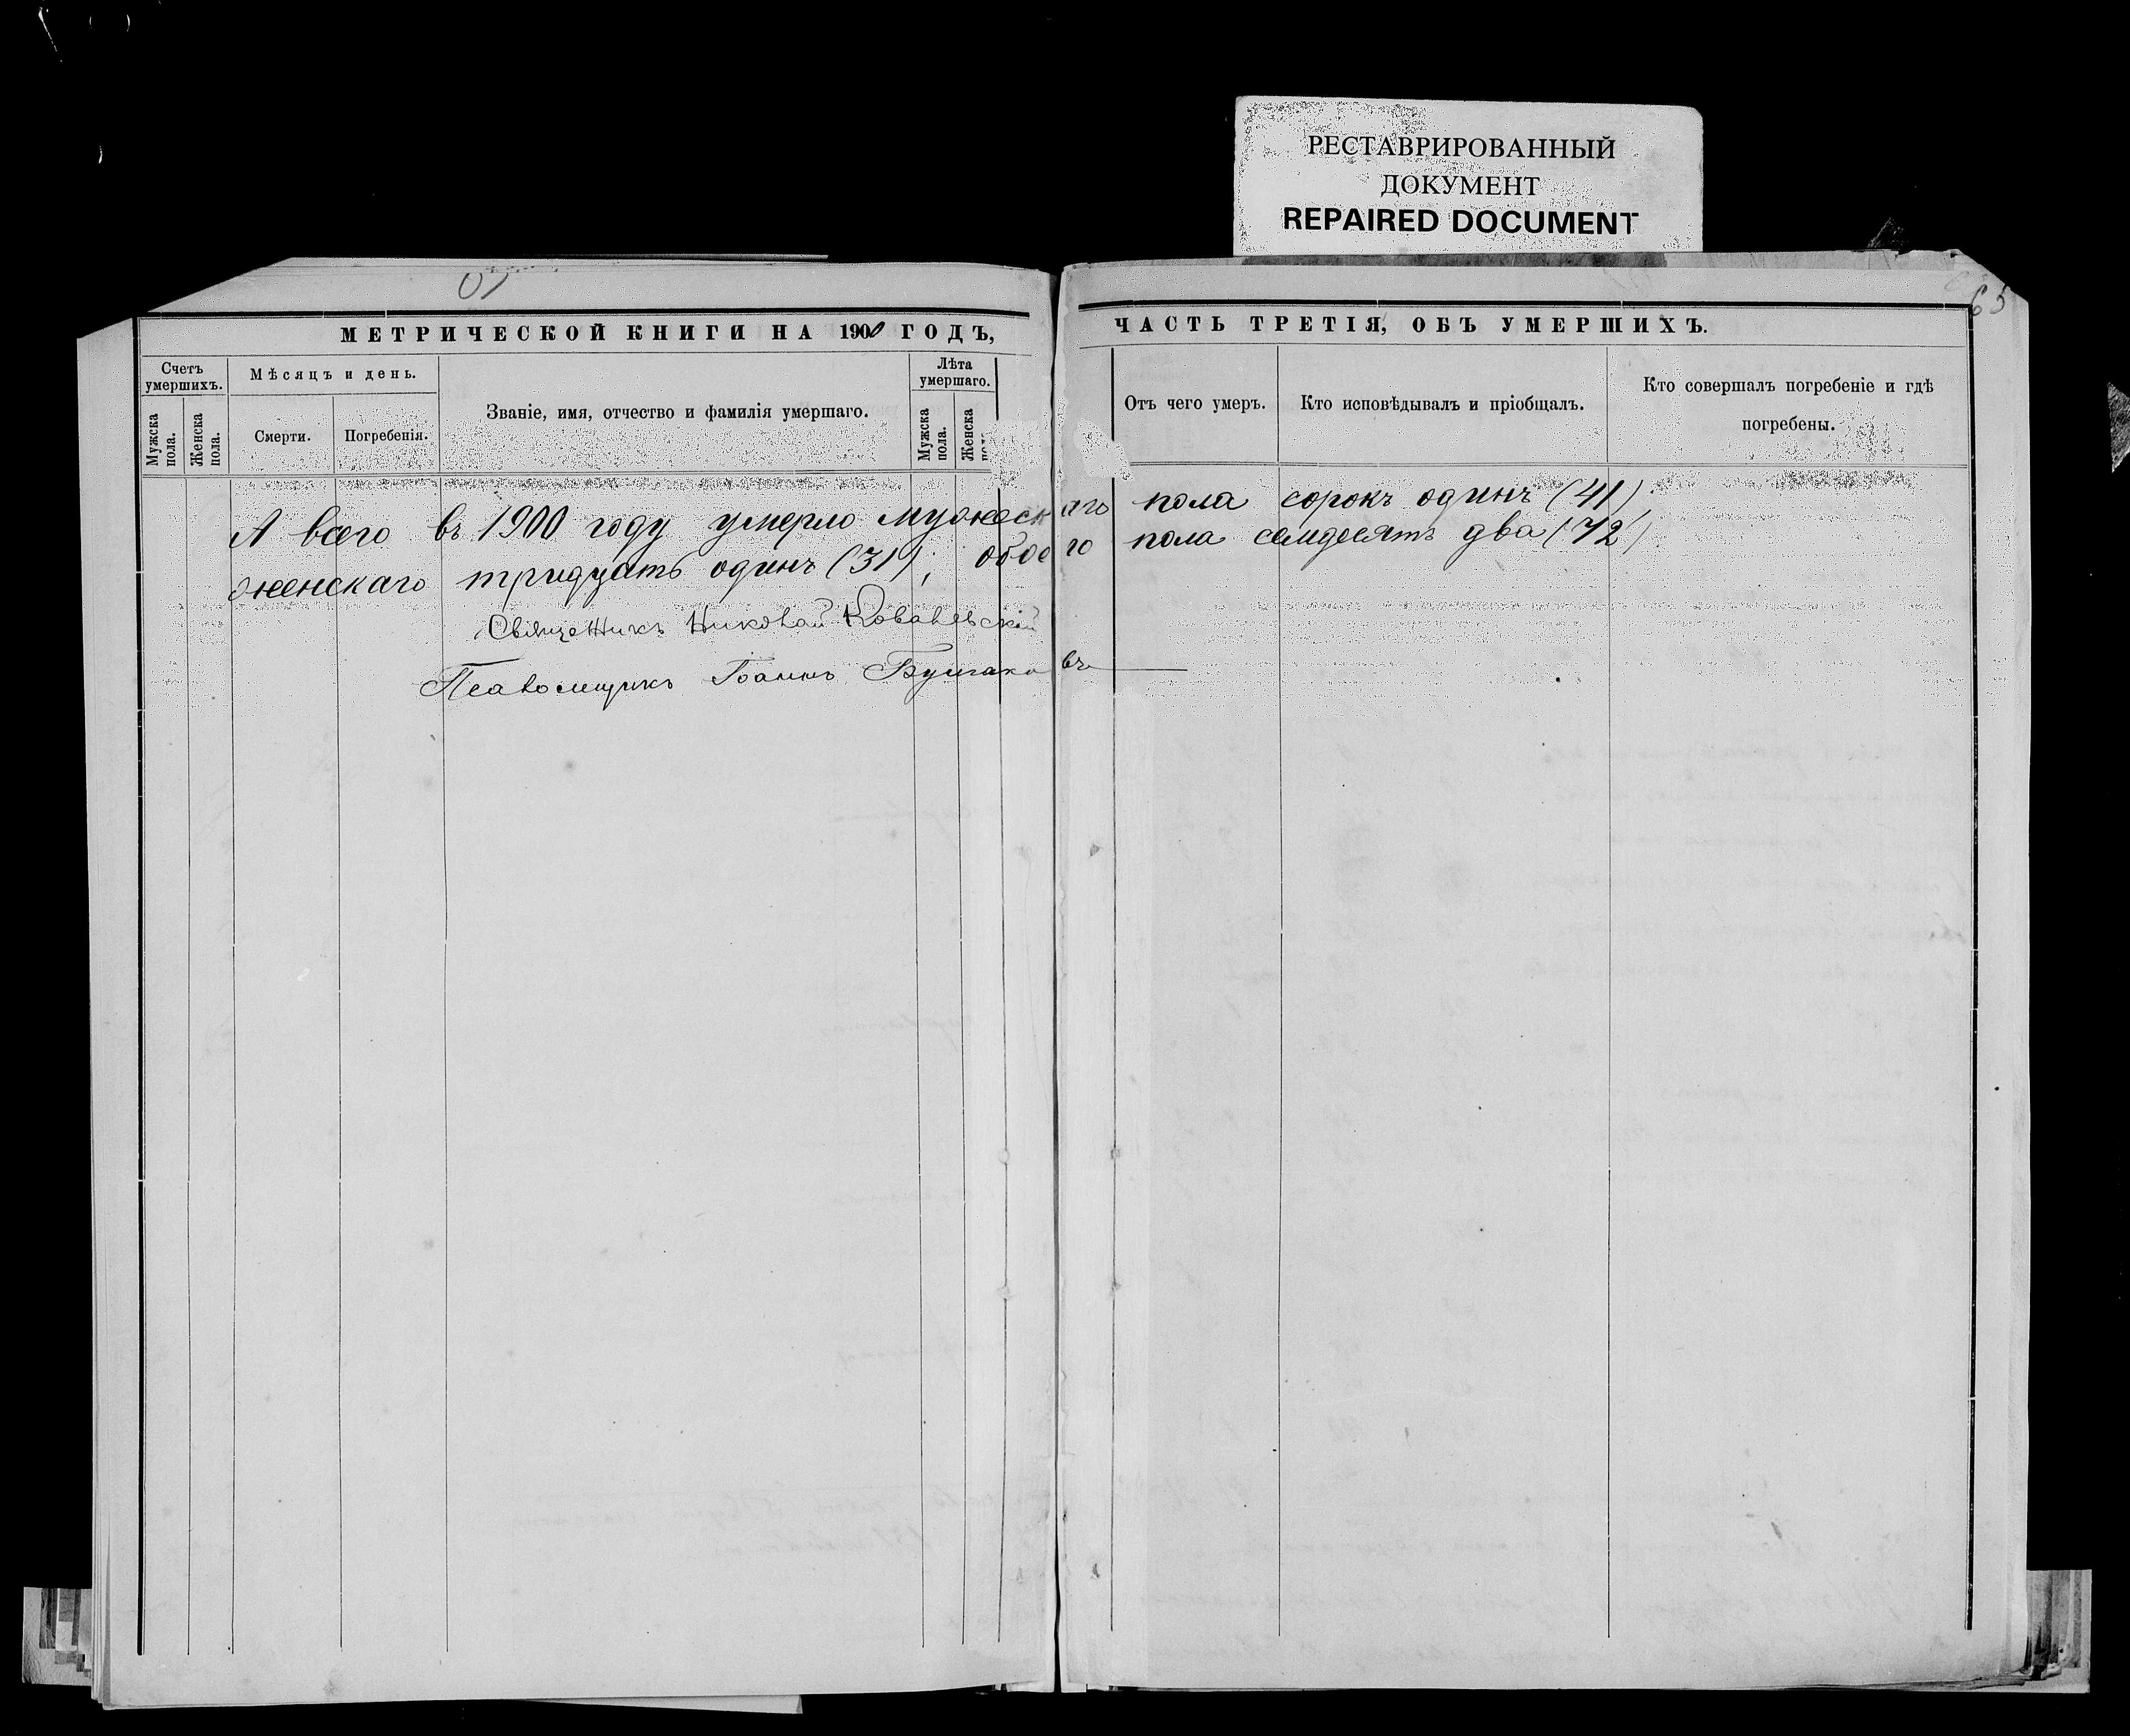 РЕСТАВРИРОВАННЫЙ
ДОКУМЕНТ
REPAIRED DOCUMENT
65
МЕТРИЧЕСКОЙ КНИГИ НА 1900 ГОДЪ, ЧАСТЬ ТРЕТІЯ, ОБЪ УМЕРШИХЪ.
Счетъ умершихъ.
Мужска пола.
Женска пола.
Мѣсяцъ и день.
Смерти.
Погребенія.
Званіе, имя, отчество и фамилія умершаго.
Лѣта умершаго.
Мужска пола.
Женска
Отъ чего умеръ.
Кто исповѣдывалъ и пріобщалъ.
Кто совершалъ погребеніе и гдѣ
погребены.
А всего въ 1900 году умерло мужескаго пола сорокъ одинъ (41)
женскаго тридцать одинъ (31), обоего пола семдесятъ два (72)
Священникъ Николай Ковалевскій
Псаломщикъ Іоаннъ Булгаковъ